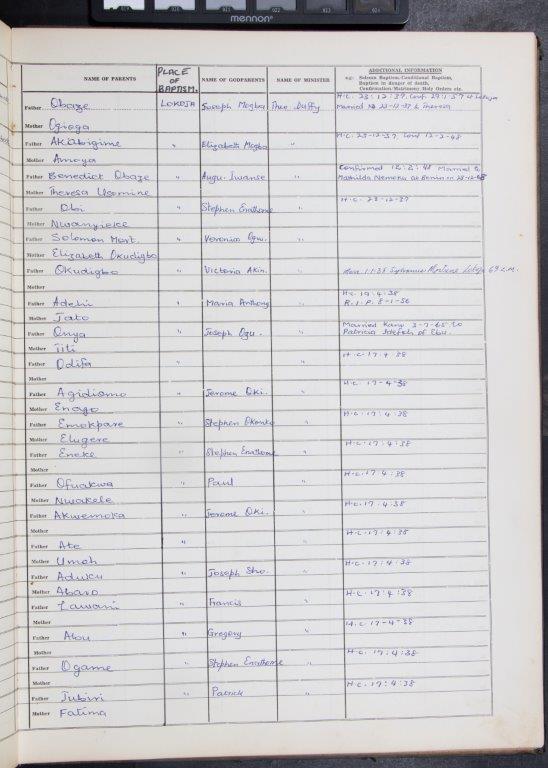 mennon
NAME OF PARENTS PLACE OF BAPTISM. NAME OF GODPARENTS NAME OF MINISTER ADDITIONAL INFORMATION
eg: Solemn Baptism, Conditional Baptism, Baptism in danger of death, Confirmation/Matrimony/Holy Orders etc.
Father Obaze LOKOJA Joseph Megba Theo. Duffy H.C. 23:12:37. Conf. 29:1:57 Lokoja
Married 23-12-57 Theresa
Mother Ogioga
Father Akabigime " Elizabeth Megba " H.C. 23-12-37 Conf 12-2-48
Mother Amoya
Father Benedict Obaze " Augu. Iwanse " Confirmed 12:2:48 Married to
Mathilda Nemeka at Benin on 28-12-68
Mother Theresa Usomine
Father Obi " Stephen Enathome " H.C. 23-12-37
Mother Nwanyieke
Father Solomon Mort. " Veronica Ogu. "
Mother Elizabeth Okudigbo
Father Okudigbo " Victoria Akin. " 1.1.38 69 C.M.
Mother
Father Adehi " Maria Anthony " H.C. 19:4:38
R.I.P. 8-1-56
Mother Jato
Father Onya " Joseph Ogu. " Married Kano 3-7-65 to
Patricia Idefoh of Ebu.
Mother Titi
Father Odifa " " H.C. 17.4.38
Mother
Father Agidiomo " Jerome Oki. " H.C. 17-4-38
Mother Enayo
Father Emokpare " Stephen Okonko " H.C. 17:4:38
Mother Elugere
Father Eneke " Stephen Enathome " H.C. 17:4:38
Mother
Father Ofuakwa " Paul " H.C. 17.4:38
Mother Nwakele
Father Akwemoka " Jerome Oki. " H.C. 17:4.38
Mother
Father Ate " " H.C. 17:4:38
Mother Umoh
Father Aduku " Joseph Sho. " H.C. 17:4:38
Mother Abaro
Father Lawani " Francis " H.C. 17:4:38
Mother
Father Abu " Gregory " H.C. 17-4-38
Mother
Father Ogame " Stephen Enathome " H.C. 17:4:38
Mother
Father Jubiri " Patrick " H.C. 17:4:38
Mother Fatima